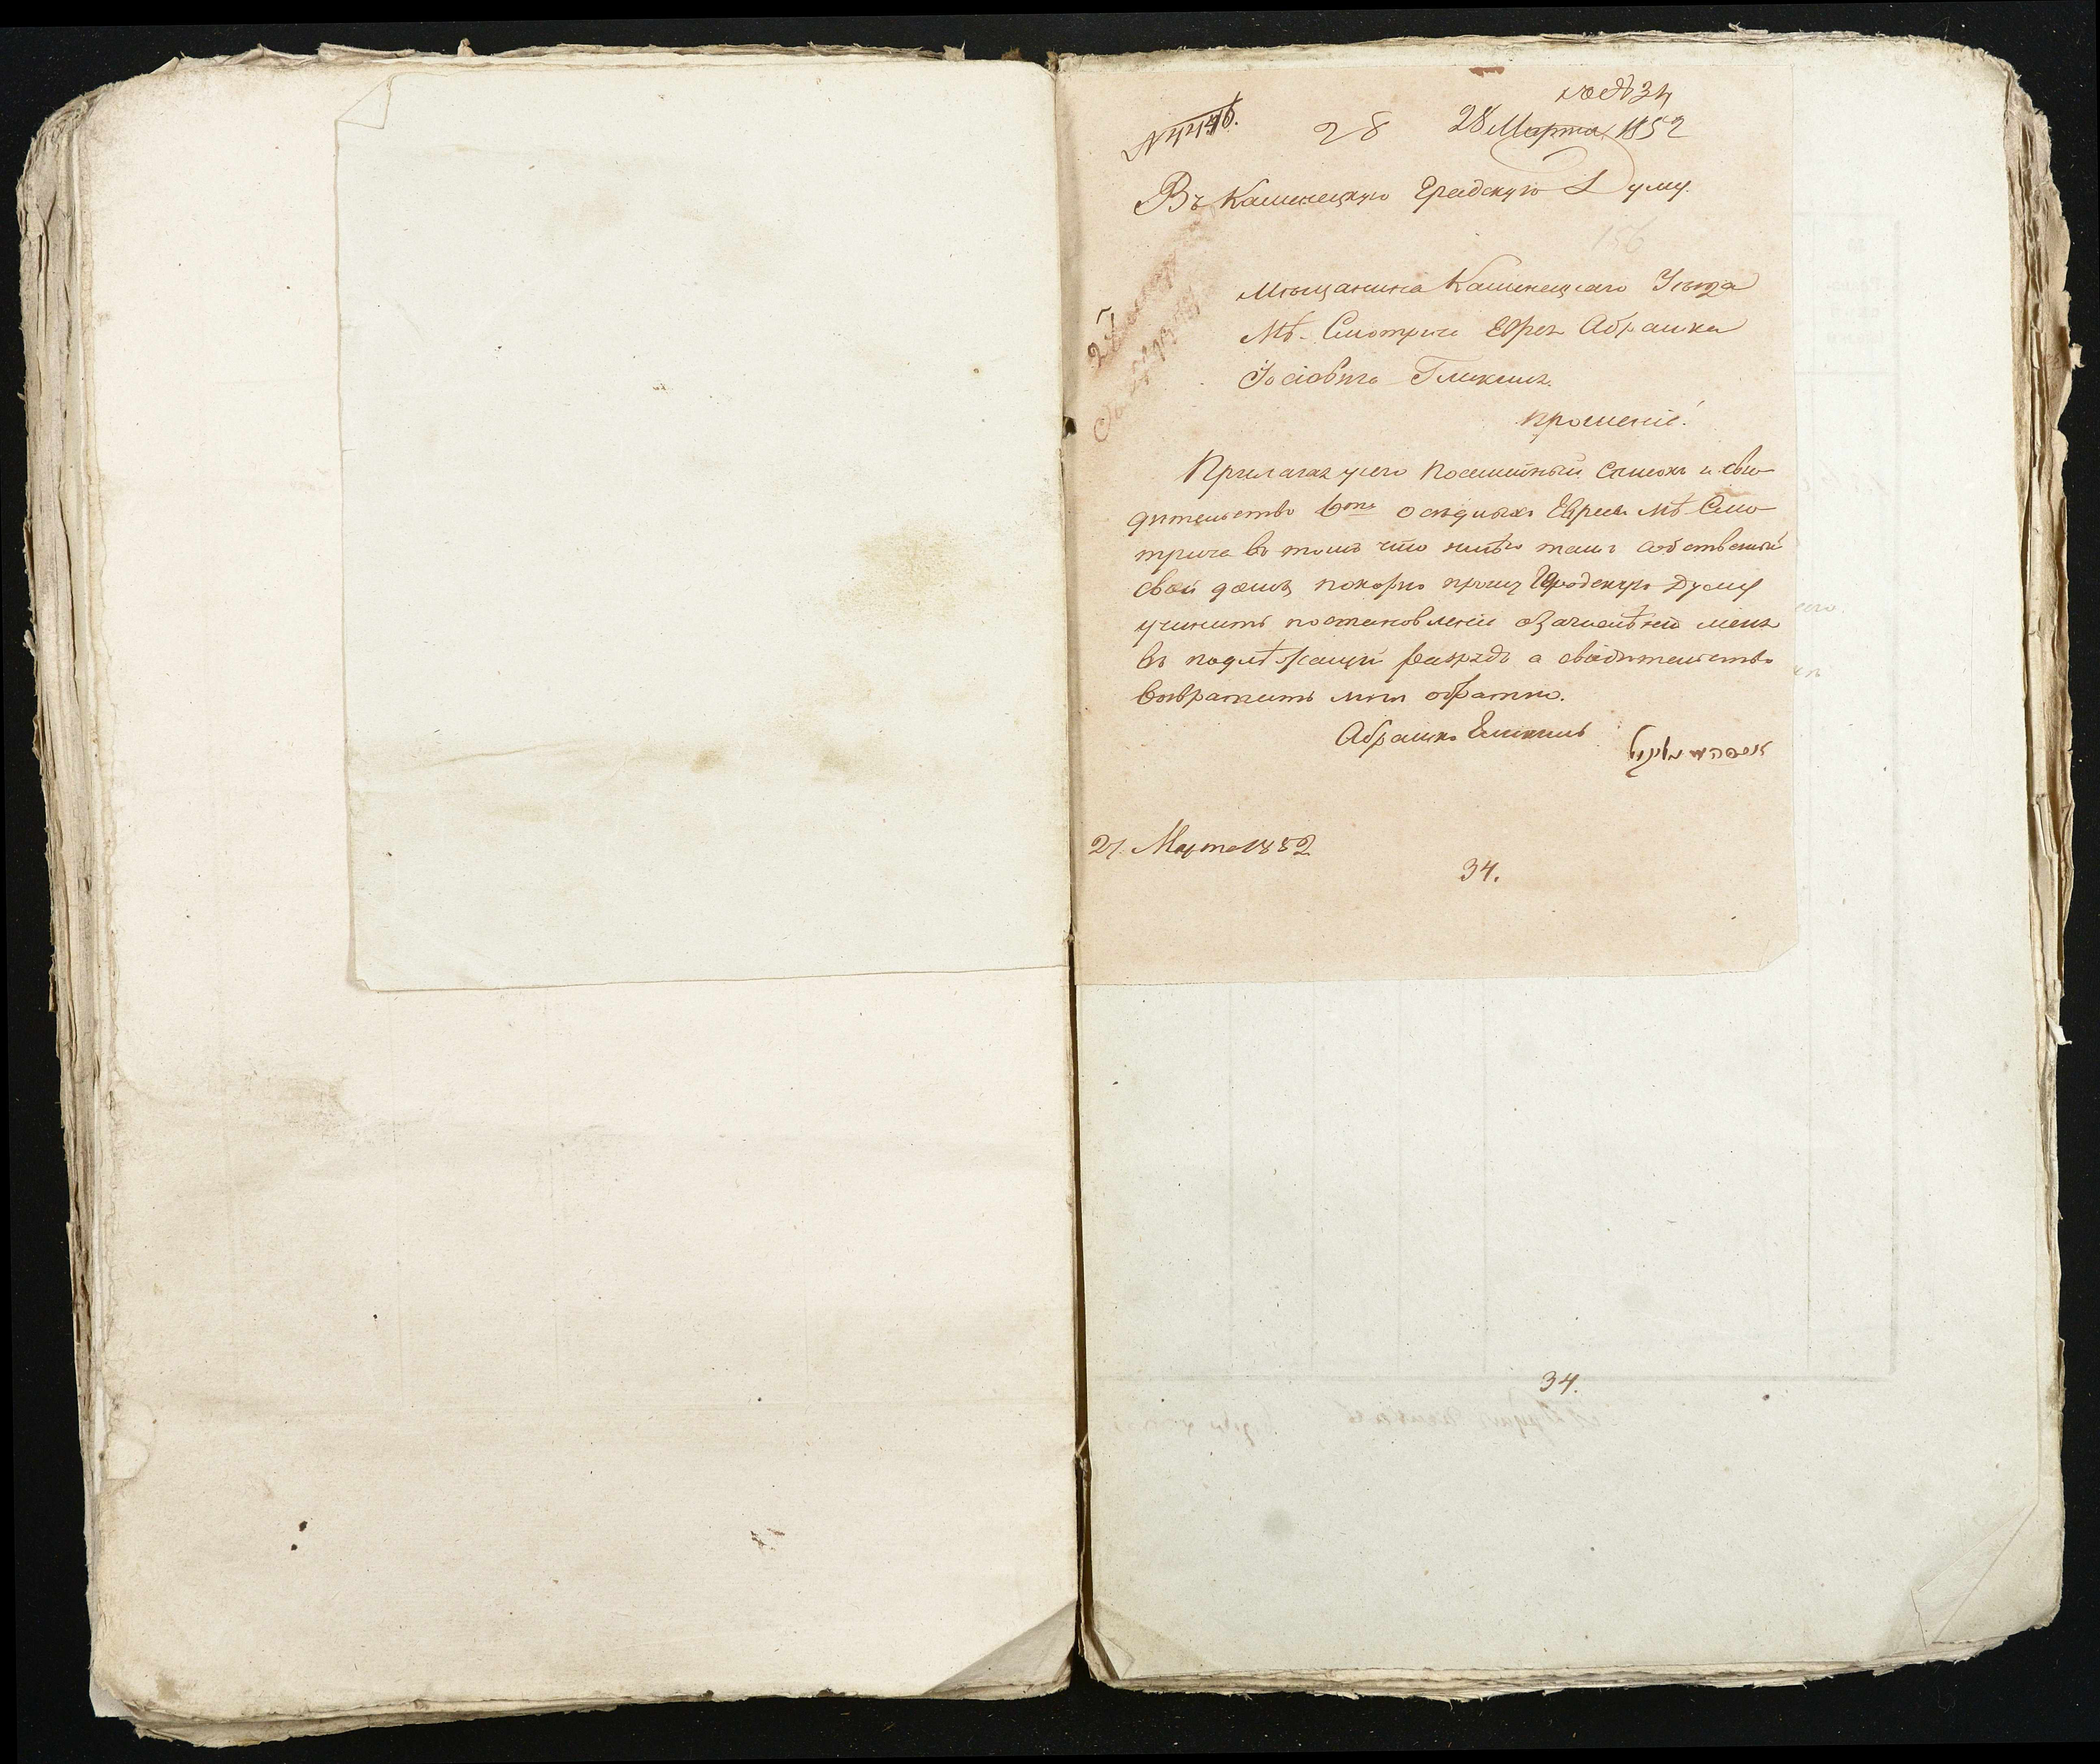 34
28 28 Марта 1852
Въ Каменецкую Градскую Думу.
156
Мѣщанина Каменецкаго Уѣзда
Мѣ. Смотрича Еврея Абрамка
Іосіовича
прошеніе.
Прилагая у сего посемейный списокъ и сви-
дѣтельство 6ти осѣдлыхъ Евреевъ Мѣ Смо-
трича въ томъ что имѣю тамъ собственный
свой домъ покорно прошу Градскую Думу
учинить постановленіе о зачисленіи меня
въ подлѣжащій разрядъ а свидѣтельство
возвратить мнѣ обратно.
Абрамко
21 Марта 1852
34.
34.